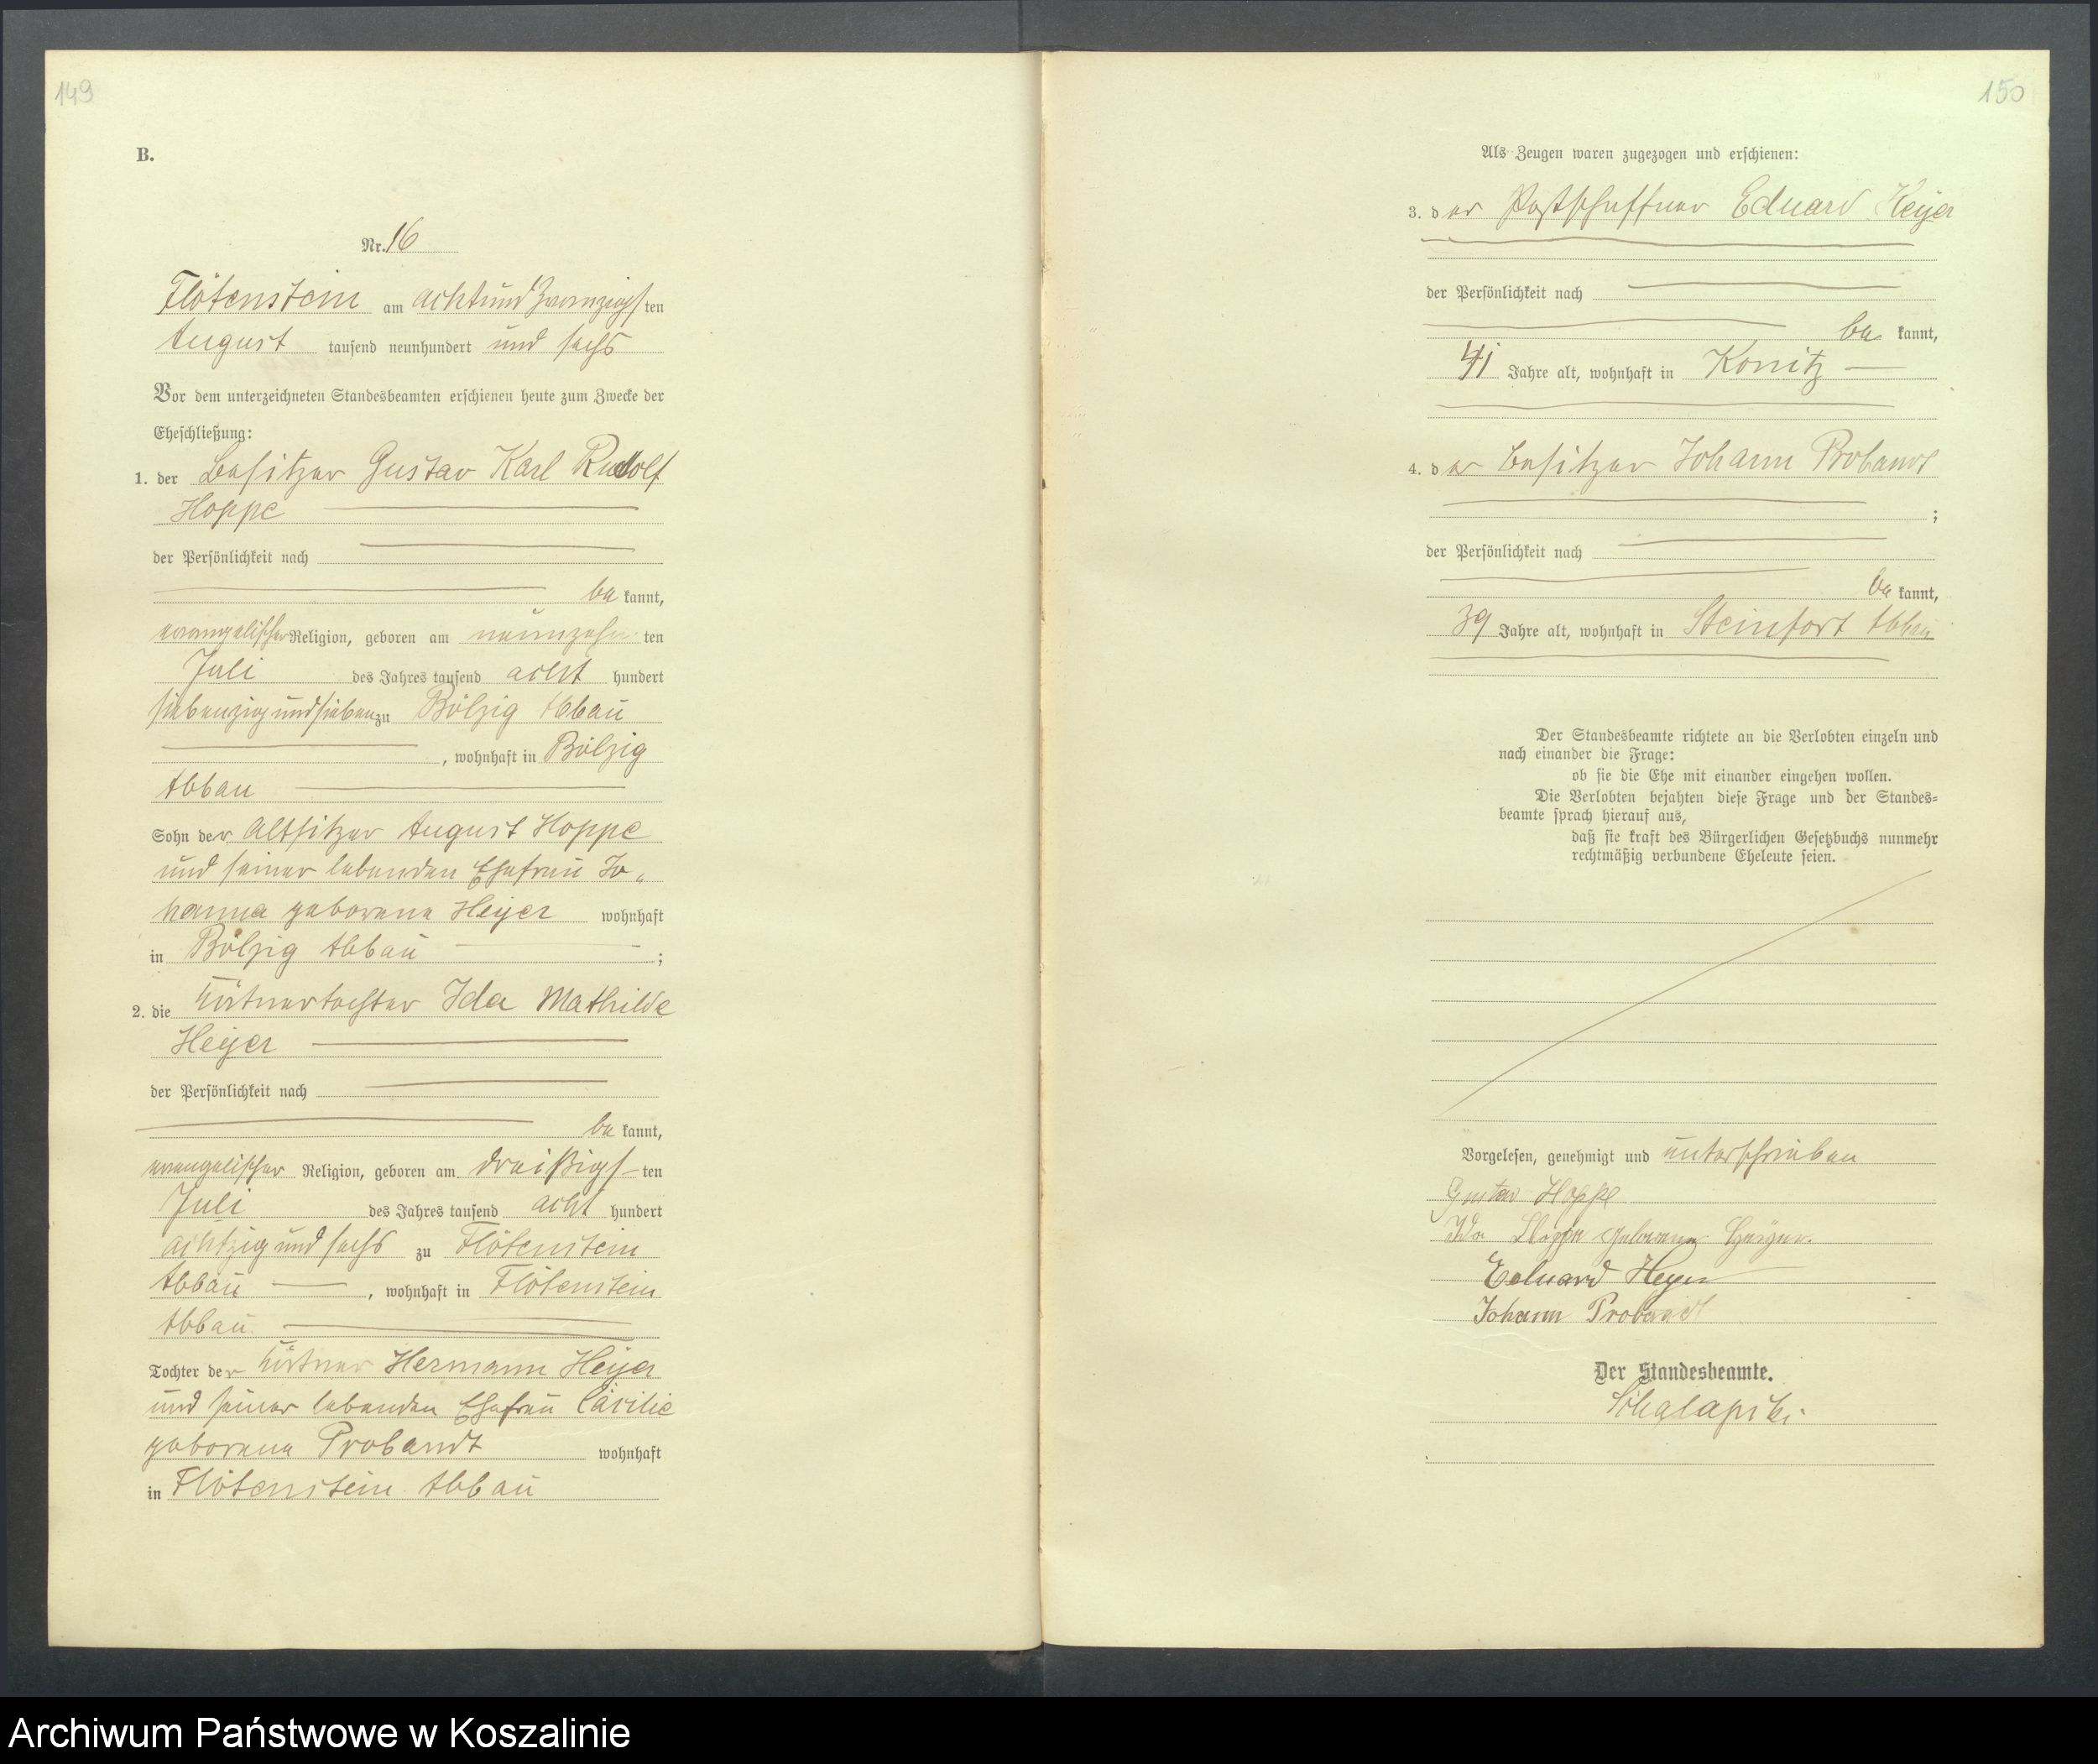 149
B.
Nr. 16
Flötenstein am achtundzwanzigsten
August tausend neunhundert und sechs
Vor dem unterzeichneten Standesbeamten erschienen heute zum Zwecke der
Eheschließung:
1. der Besitzer Gustav Karl Rudolf
Hoppe
der Persönlichkeit nach
be kannt,
evangelischer Religion, geboren am neunzehn ten
Juli des Jahres tausend acht hundert
siebenzig und sieben zu Bölzig Abbau
, wohnhaft in Bölzig
Abbau
Sohn der Altsitzer August Hoppe
und seiner lebenden Ehefrau Jo„
hanna geborene Heyer wohnhaft
in Bölzig Abbau ;
2. die Tochter Ida Mathilde
Heyer
der Persönlichkeit nach
be kannt,
evangelischer Religion, geboren am dreißigs ten
Juli des Jahres tausend acht hundert
achtzig und sechs zu Flötenstein
Abbau , wohnhaft in Flötenstein
Abbau
Tochter der Hermann Heyer
und seiner lebenden Ehefrau Cäcilie
geborene Probandt wohnhaft
in Flötenstein Abbau
150
Als Zeugen waren zugezogen und erschienen:
3. der Postschaffner Eduard Heyer
der Persönlichkeit nach
be kannt,
41 Jahre alt, wohnhaft in Konitz
4. der Besitzer Johann Probandt
;
der Persönlichkeit nach
be kannt,
39 Jahre alt, wohnhaft in Steinfort Abbau
Der Standesbeamte richtete an die Verlobten einzeln und
nach einander die Frage:
ob sie die Ehe mit einander eingehen wollen.
Die Verlobten bejahten diese Frage und der Standes=
beamte sprach hierauf aus,
daß sie kraft des Bürgerlichen Gesetzbuchs nunmehr
rechtmäßig verbundene Eheleute seien.
Vorgelesen, genehmigt und unterschrieben
Gustav Hoppe
Ida Hoppe geborene Heyer.
Eduard Heyer
Johann Probandt
Der Standesbeamte.
Archiwum Państwowe w Koszalinie